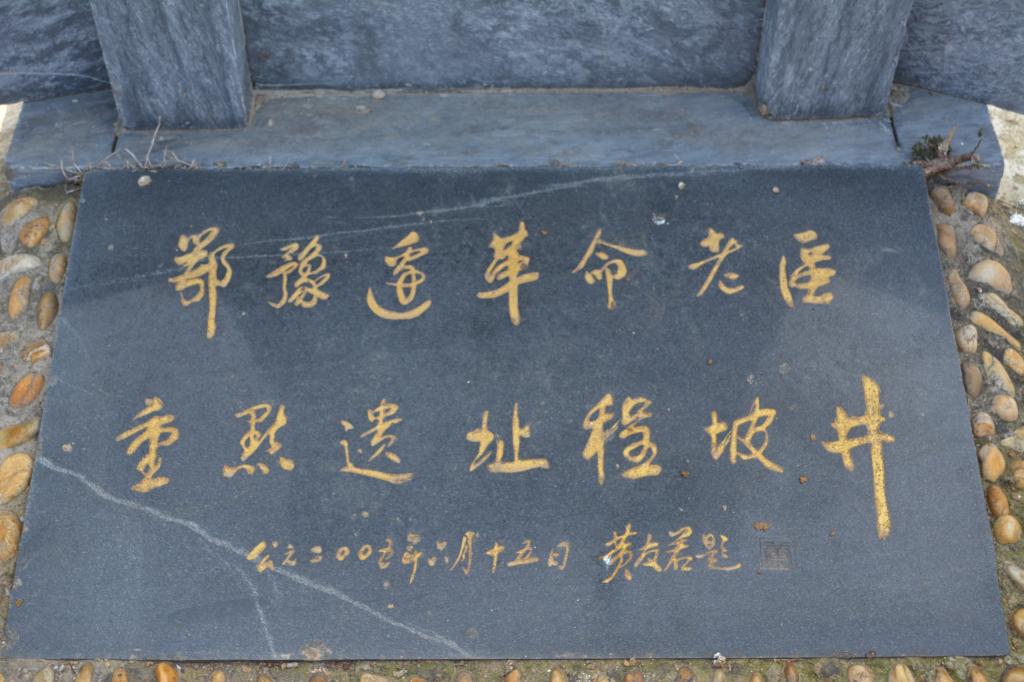 鄂豫邊革命老区
重點遗址程坡井
公元二00五年六月十五日 黄友若题